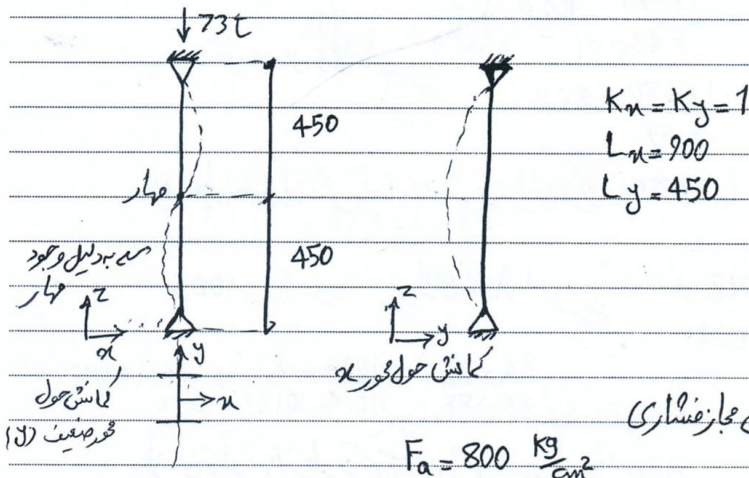 73t
450
450
مهار
به دلیل وجود
مهار
z
x
y
x
کمانش حول
محور ضعیف (y)
z
y
کمانش حول محور x
Kx = Ky = 1
Lx = 900
Ly = 450
مجاز فشاری
Fa = 800 kg/cm²